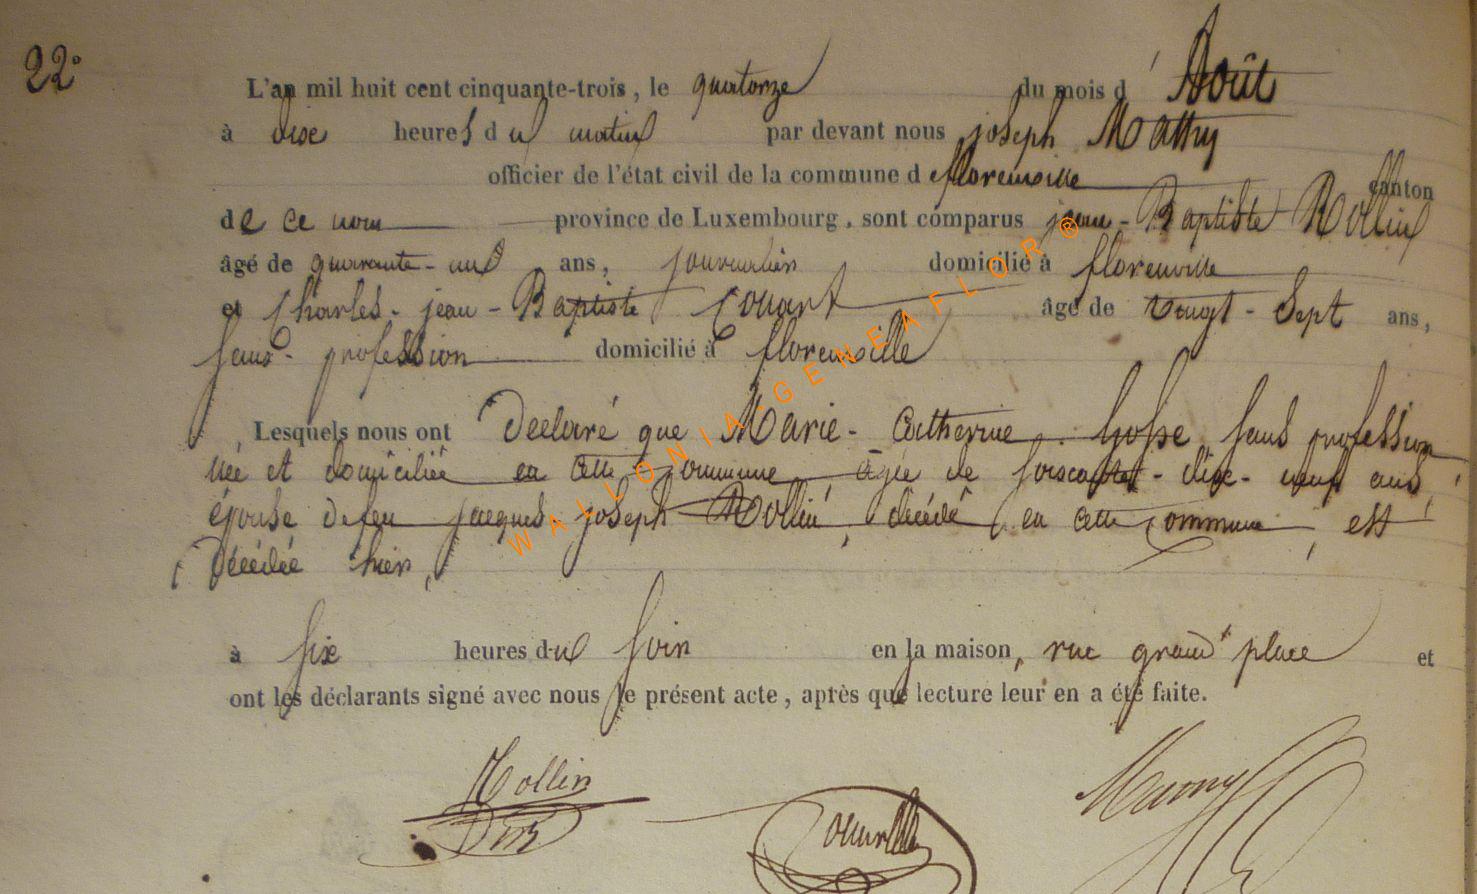 22°
L'an mil huit cent cinquante-trois, le quatorze du mois d' Août
à dix heures du matin par devant nous joseph Mathy
officier de l'état civil de la commune de florenville canton
de ce nom province de Luxembourg, sont comparus jean-Baptiste Rollin
âgé de quarante-uns ans, journalier domicilié à florenville
et Charles-jean-Baptiste âgé de vingt-Sept ans,
sans profession domicilié à florenville
Lesquels nous ont Declaré que Marie-Catherine Gosse sans profession
née et domiciliée en cette commune, agée de soixante-dix-neuf ans,
épouse de feu jacques joseph Rollin, décédé en cette commune, est
Décédée hier,
à six heures du soir en la maison, rue grand'place et
ont les déclarants signé avec nous le présent acte, après que lecture leur en a été faite.
Rollin
WALLONIA-GENEAFLOR®